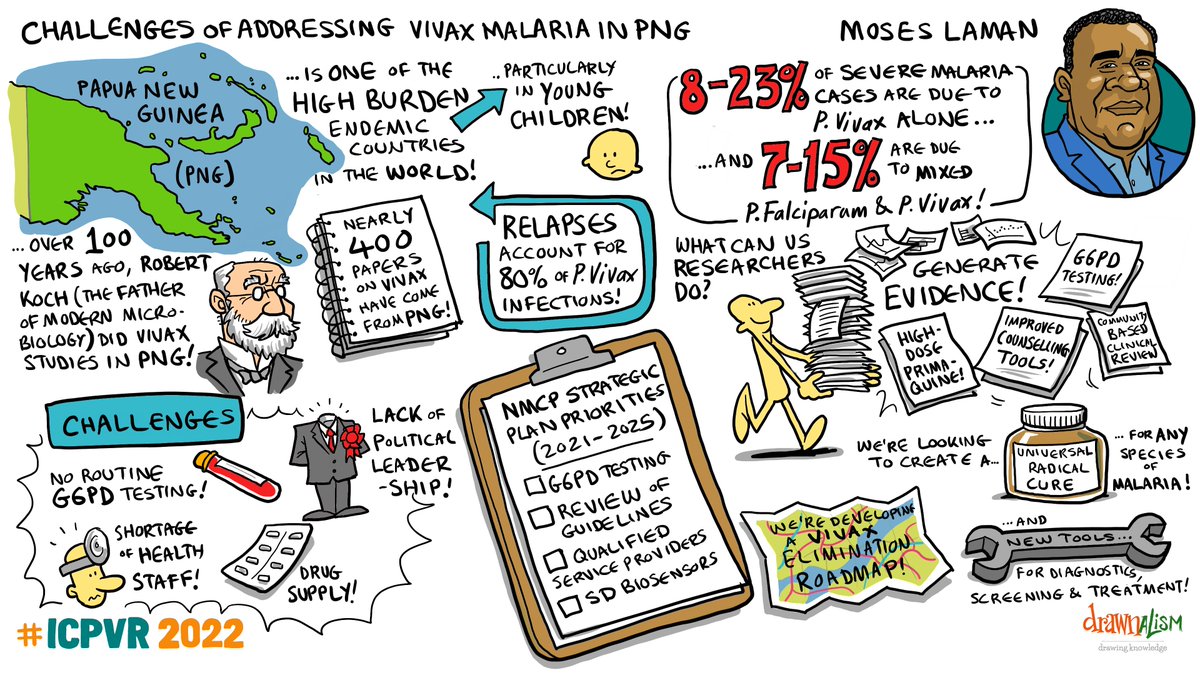 CHALLENGES OF ADDRESSING VIVAX MALARIA IN PNG
MOSES LAMAN
PAPUA NEW
GUINEA
(PNG)
...IS ONE OF THE
HIGH BURDEN
ENDEMIC
COUNTRIES
IN THE WORLD!
..PARTICULARLY
IN YOUNG
CHILDREN!
8-23% OF SEVERE MALARIA
CASES ARE DUE TO
P. Vivax ALONE...
...AND 7-15% ARE DUE
TO MIXED
P. Falciparam & P. Vivax!
...OVER 100
YEARS AGO, ROBERT
KOCH (THE FATHER
OF MODERN MICRO-
BIOLOGY) DID VIVAX
STUDIES IN PNG!
NEARLY
400
PAPERS
ON VIVAX
HAVE COME
FROM PNG!
RELAPSES
ACCOUNT FOR
80% OF P. Vivax
INFECTIONS!
WHAT CAN US
RESEARCHERS
DO?
GENERATE
EVIDENCE!
G6PD
TESTING!
HIGH-
DOSE
PRIMA-
QUINE!
IMPROVED
COUNSELLING
TOOLS!
COMMUNITY
BASED
CLINICAL
REVIEW
CHALLENGES
NO ROUTINE
G6PD TESTING!
LACK OF
POLITICAL
LEADER
-SHIP!
SHORTAGE
OF HEALTH
STAFF!
DRUG
SUPPLY!
NMCP STRATEGIC
PLAN PRIORITIES
(2021-2025)
G6PD TESTING
REVIEW OF
GUIDELINES
QUALIFIED
SERVICE PROVIDERS
SD BIOSENSORS
WE'RE LOOKING
TO CREATE A...
UNIVERSAL
RADICAL
CURE
...FOR ANY
SPECIES
OF
MALARIA!
WE'RE DEVELOPING
A VIVAX
ELIMINATION
ROADMAP!
...AND
NEW TOOLS...
FOR DIAGNOSTICS,
SCREENING & TREATMENT!
#ICPVR 2022
drawnalism
drawing.knowledge